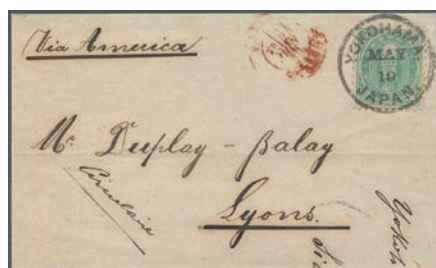 Via America
YOKOHAMA
MAY
10
JAPAN
Mr. Duplay - Balay
Circulaire
Lyons.